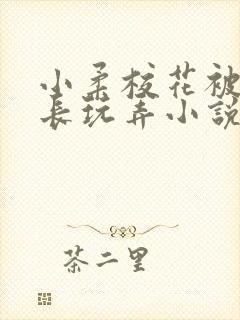 小柔校花被
长玩弄小說
茶二里